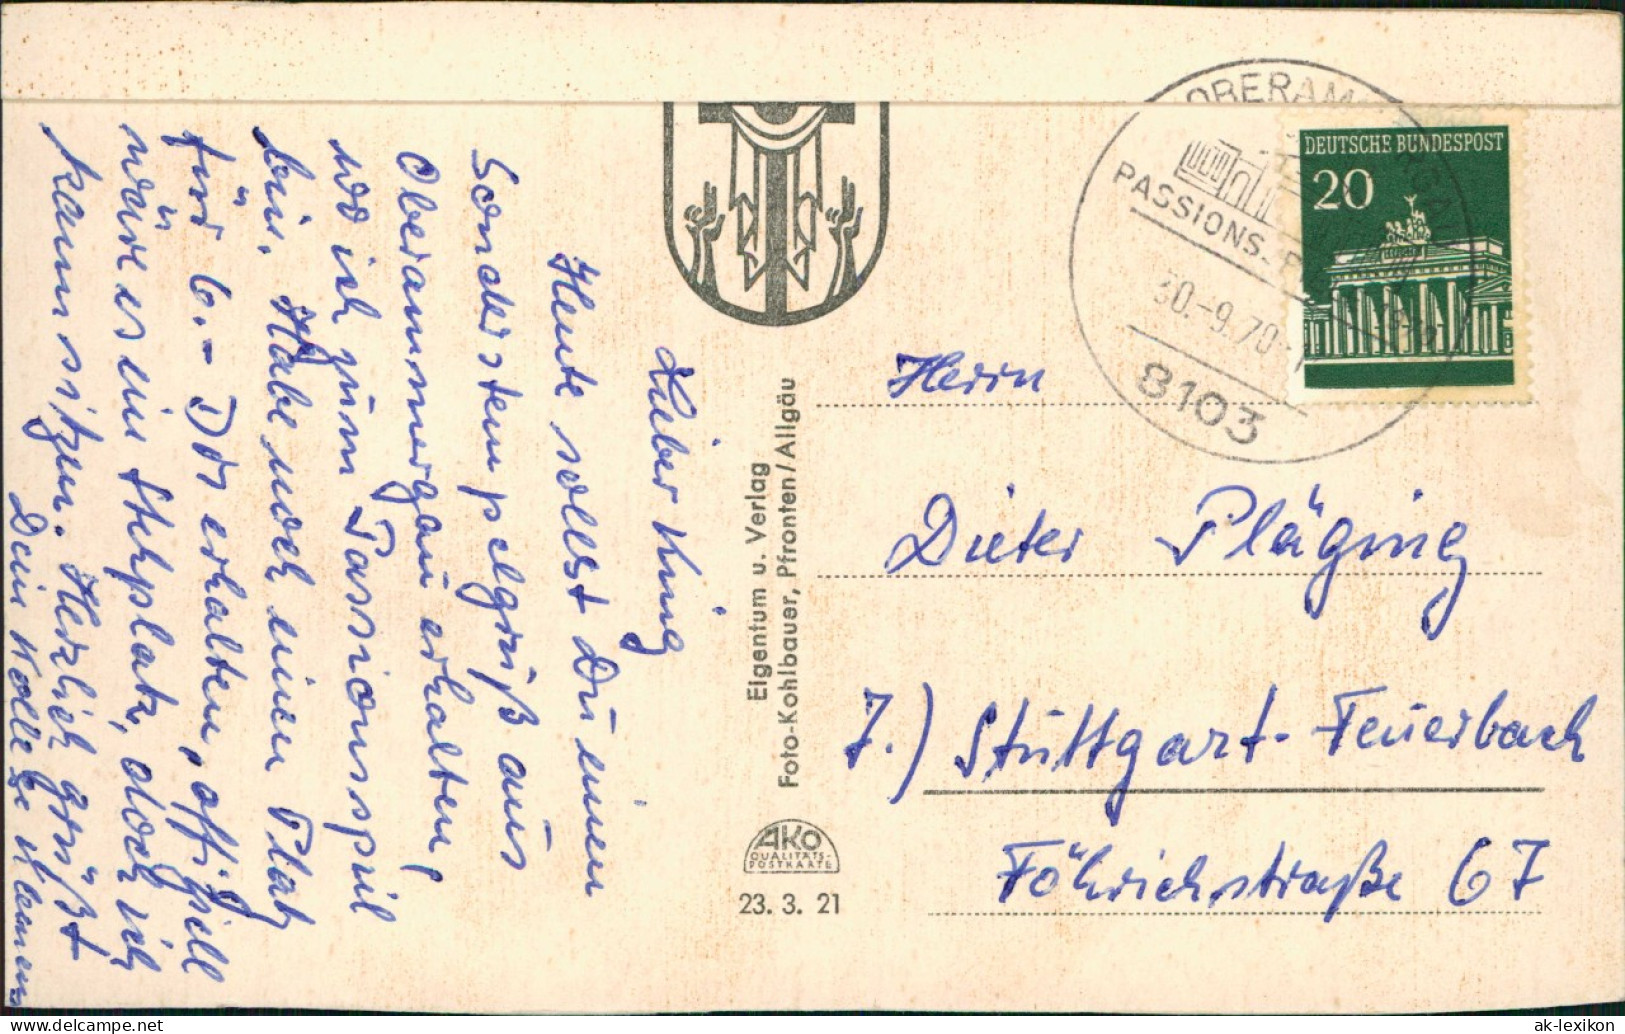 Lieber King
Heute sollst Du einen
Sonderstempelgruß aus
Oberammergau erhalten,
wo ich zum Passionsspiel
bin. Habe noch einen Platz
für 6.- DM erhalten, offiziell
wäre es ein Stehplatz, doch ich
kann sitzen. Herzlich grüßt
Dein
Eigentum u. Verlag
Foto-Kohlbauer, Pfronten/Allgäu
AKO
QUALITÄTS-
POSTKARTE
23. 3. 21
OBERAM RGAU
PASSIONS-
30.-9.70
8103
DEUTSCHE BUNDESPOST
20
Herrn
Dieter Pläging
7.) Stuttgart-Feuerbach
Föhrichstraße 67
www.delcampe.net
ak-lexikon